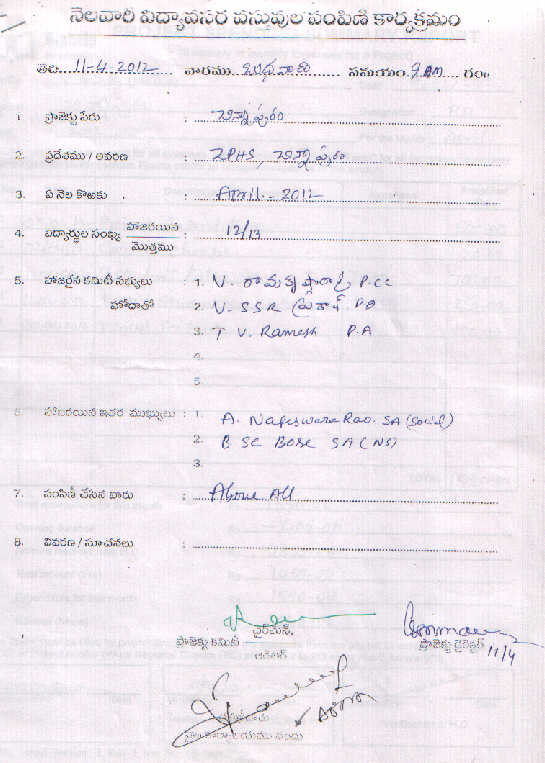 నెలవారీ విద్యావసర వస్తువుల పంపిణీ కార్యక్రమం
తేది. 11-4-2012 వారము. బుధవారం సమయం. 9 AM గం॥
1 ప్రాజెక్టు పేరు :
2. ప్రదేశము / ఆవరణ : ZPHS,
3. ఏ నెల కొఱకు : April - 2012
4. విద్యార్థుల సంఖ్య హాజరయిన : 12/13
మొత్తము
5. హాజరైన కమిటీ సభ్యులు : 1. V. రామకృష్ణారావు, P.CC
హోదాతో 2. V. SSR P.D
3. T V. Ramesh P.A
4.
5.
6. హాజరయిన ఇతర ముఖ్యులు : 1. A. Nageswara Rao. SA (Social)
2. B SC Bose SA (NS)
3.
7. పంపిణీ చేసిన వారు : Above All
8. వివరణ / సూచనలు :
చైర్మెన్,
ప్రాజెక్టు కమిటీ
ప్రాజెక్టు డైరెక్టర్ 11/4